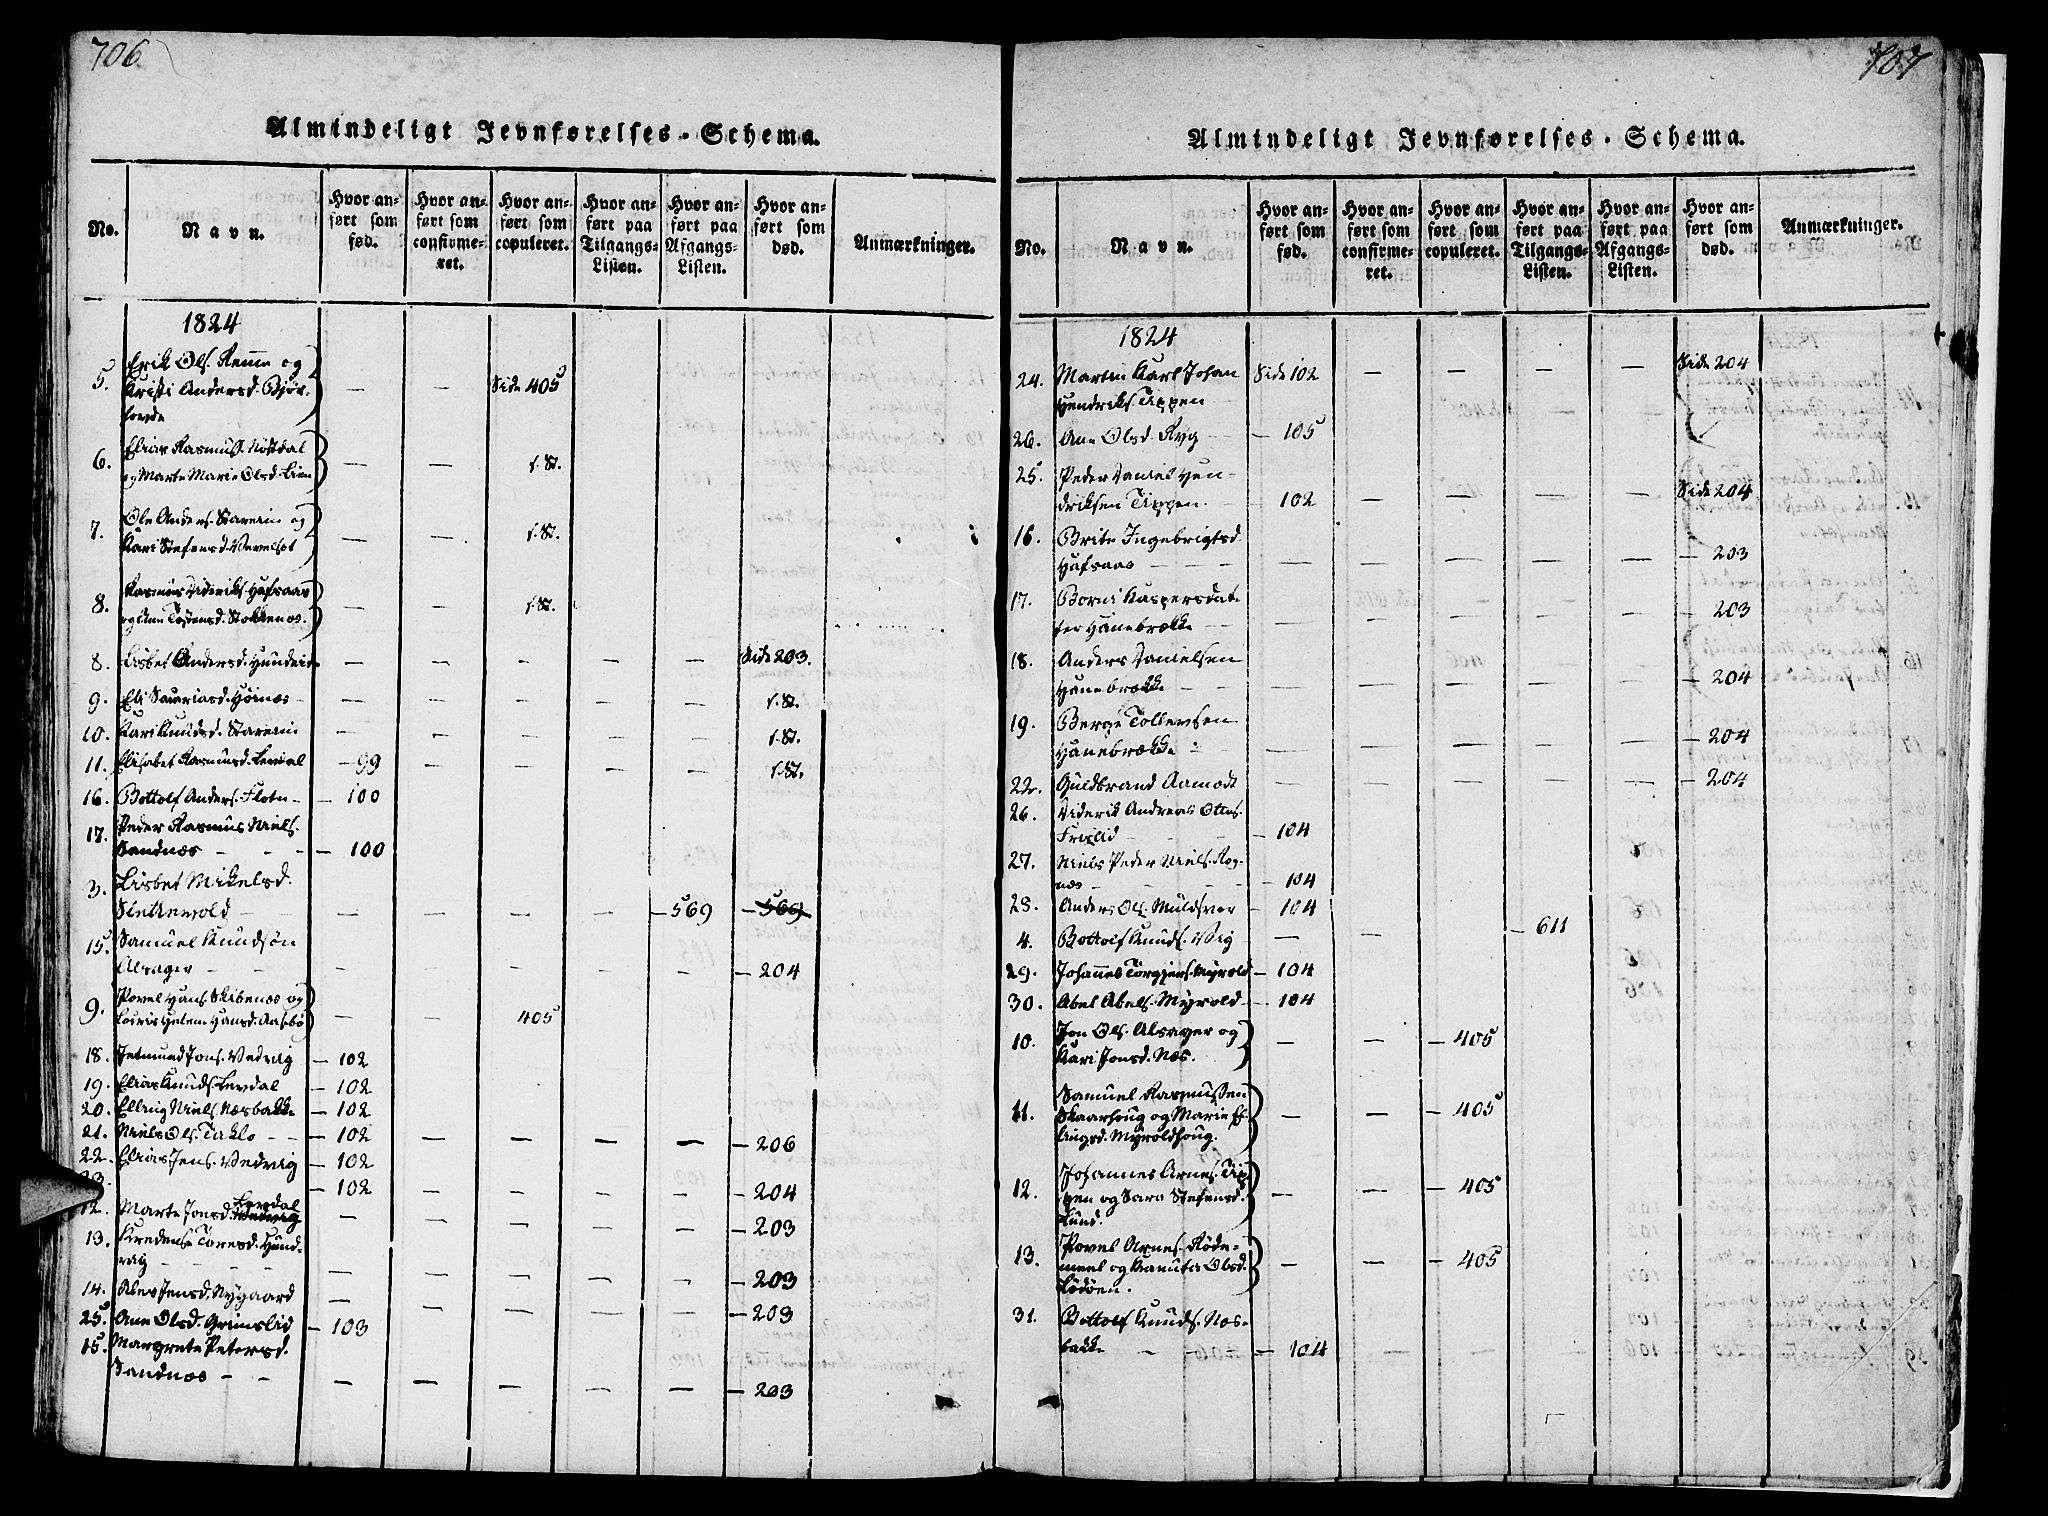 706
Almindeligt Jevnførelses-Schema.
No. Navn. Hvor anført som fød. Hvor anført som confirmeret. Hvor anført som copuleret. Hvor anført paa Tilgangs-Listen. Hvor anført paa Afgangs-Listen. Hvor anført som død. Anmærkninger.
1824
5. Erik Ols. Remme og
Kristi Andersd. Bjør- — — Side 405
6. Elias Rasmuss. Nøstdal
og Marte Marie Olsd. Lien — — s. St.
7. Ole Anders. Staveim og
Kari Stefensd. — — s. St.
8. Rasmus Dideriks. Hafsaas
og Anne — — s. St.
8. Lisbet Andersd. Hundeide — — — — — Side 203.
9. Eli — — — — — s. St.
10. Kari Knudsd. Staveim — — — — — s. St.
11. Elisabet Rasmusd. Levdal — 99 — — — — s. St.
16. Bottolf Anders. Flotn — 100
17. Peder Rasmus Niels.
Sandnæs — — — 100
3. Lisbet Mikelsd. — — — — — 569 — 569
15. Samuel Knudsøn
Alsager — — — — — — 204
9. Povel Hans. Skibenæs og
Helene Hansd. Aasebø — — 405
18. Jetmund Jons. Vedvig — 102
19. Elias Knuds. Levdal — 102
20. Elling Niels. Næsbakke — 102
21. Niels Ols. Taklo — — 102 — — — — — 206
22. Elias Jens. Vedvig — 102
— 102 — — — — — 204
Levdal
12. Marte Jonsd. Vedvig — — — — — — 203
13. Toresd. Hund- — — — — — — 203
14. Jensd. Nygaard — — — — — — 203
25. Ane Olsd. Grimslid — 103
15. Margrete Petersd.
Sandnæs — — — — — — — — 203
707
Almindeligt Jevnførelses-Schema.
No. Navn. Hvor anført som fød. Hvor anført som confirmeret. Hvor anført som copuleret. Hvor anført paa Tilgangs-Listen. Hvor anført paa Afgangs-Listen. Hvor anført som død. Anmærkninger.
1824
24. Martin Karl Johan Side 102 — — — — Side 204
Hendriks. Tippen —
26. Ane Olsd. Ryg — — 105
25. Peder Daniel Hen-
driksen Tippen. — 102 — — — — Side 204
16. Brite Ingebrigtsd.
Hafsaas — — — — — — — — — 203
17. Borni Kaspersdat-
ter Hanebrække — — — — — — — — 203
18. Anders Danielsen
Hanebrække — — — — — — — 204
19. Berge Tollevsen
Hanebrække — — — — — — 204
22. Guldbrand Aamodt — — — — — — 204
26. Diderik Andreas Ottes.
— 104
27. Niels Peder Niels. Røg-
næs — 104
28. Anders Ols. Muldsvor — 104
4. Bottolf Knuds. Vig — — — — 611
29. Johannes Torgjers. Myrold — 104
30. Abel Abels. Myrold — 104
10. Jon Ols. Alsager og
Kari Jonsd. Næs. — — — 405
11. Samuel Rasmussen
Skaarhoug og Marie El-
lingsd. Myroldhoug. — — — 405
12. Johannes Arnes. Tip-
pen og Sara Stefensd.
Lund. — — — 405
13. Povel Arnes. Røde-
meel og Kanuta Olsd. — — — 405
31. Bottolf Knuds. Næs-
bakke — — — 104